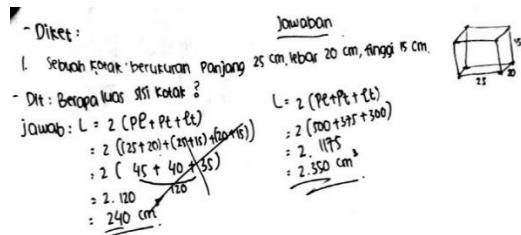 Jawaban
- Diket:
1. Sebuah kotak berukuran Panjang 25 cm, lebar 20 cm, tinggi 15 cm.
- Dit: Berapa luas sisi kotak?
jawab: L = 2 (Pl + Pt + lt)
= 2 ((25+20)+(25+15)+(20+15))
= 2 ( 45 + 40 + 35)
120
= 2. 120
= 240 cm
L = 2 (Pl + Pt + lt)
= 2 (500 + 375 + 300)
= 2. 1175
= 2.350 cm³
15
25
20